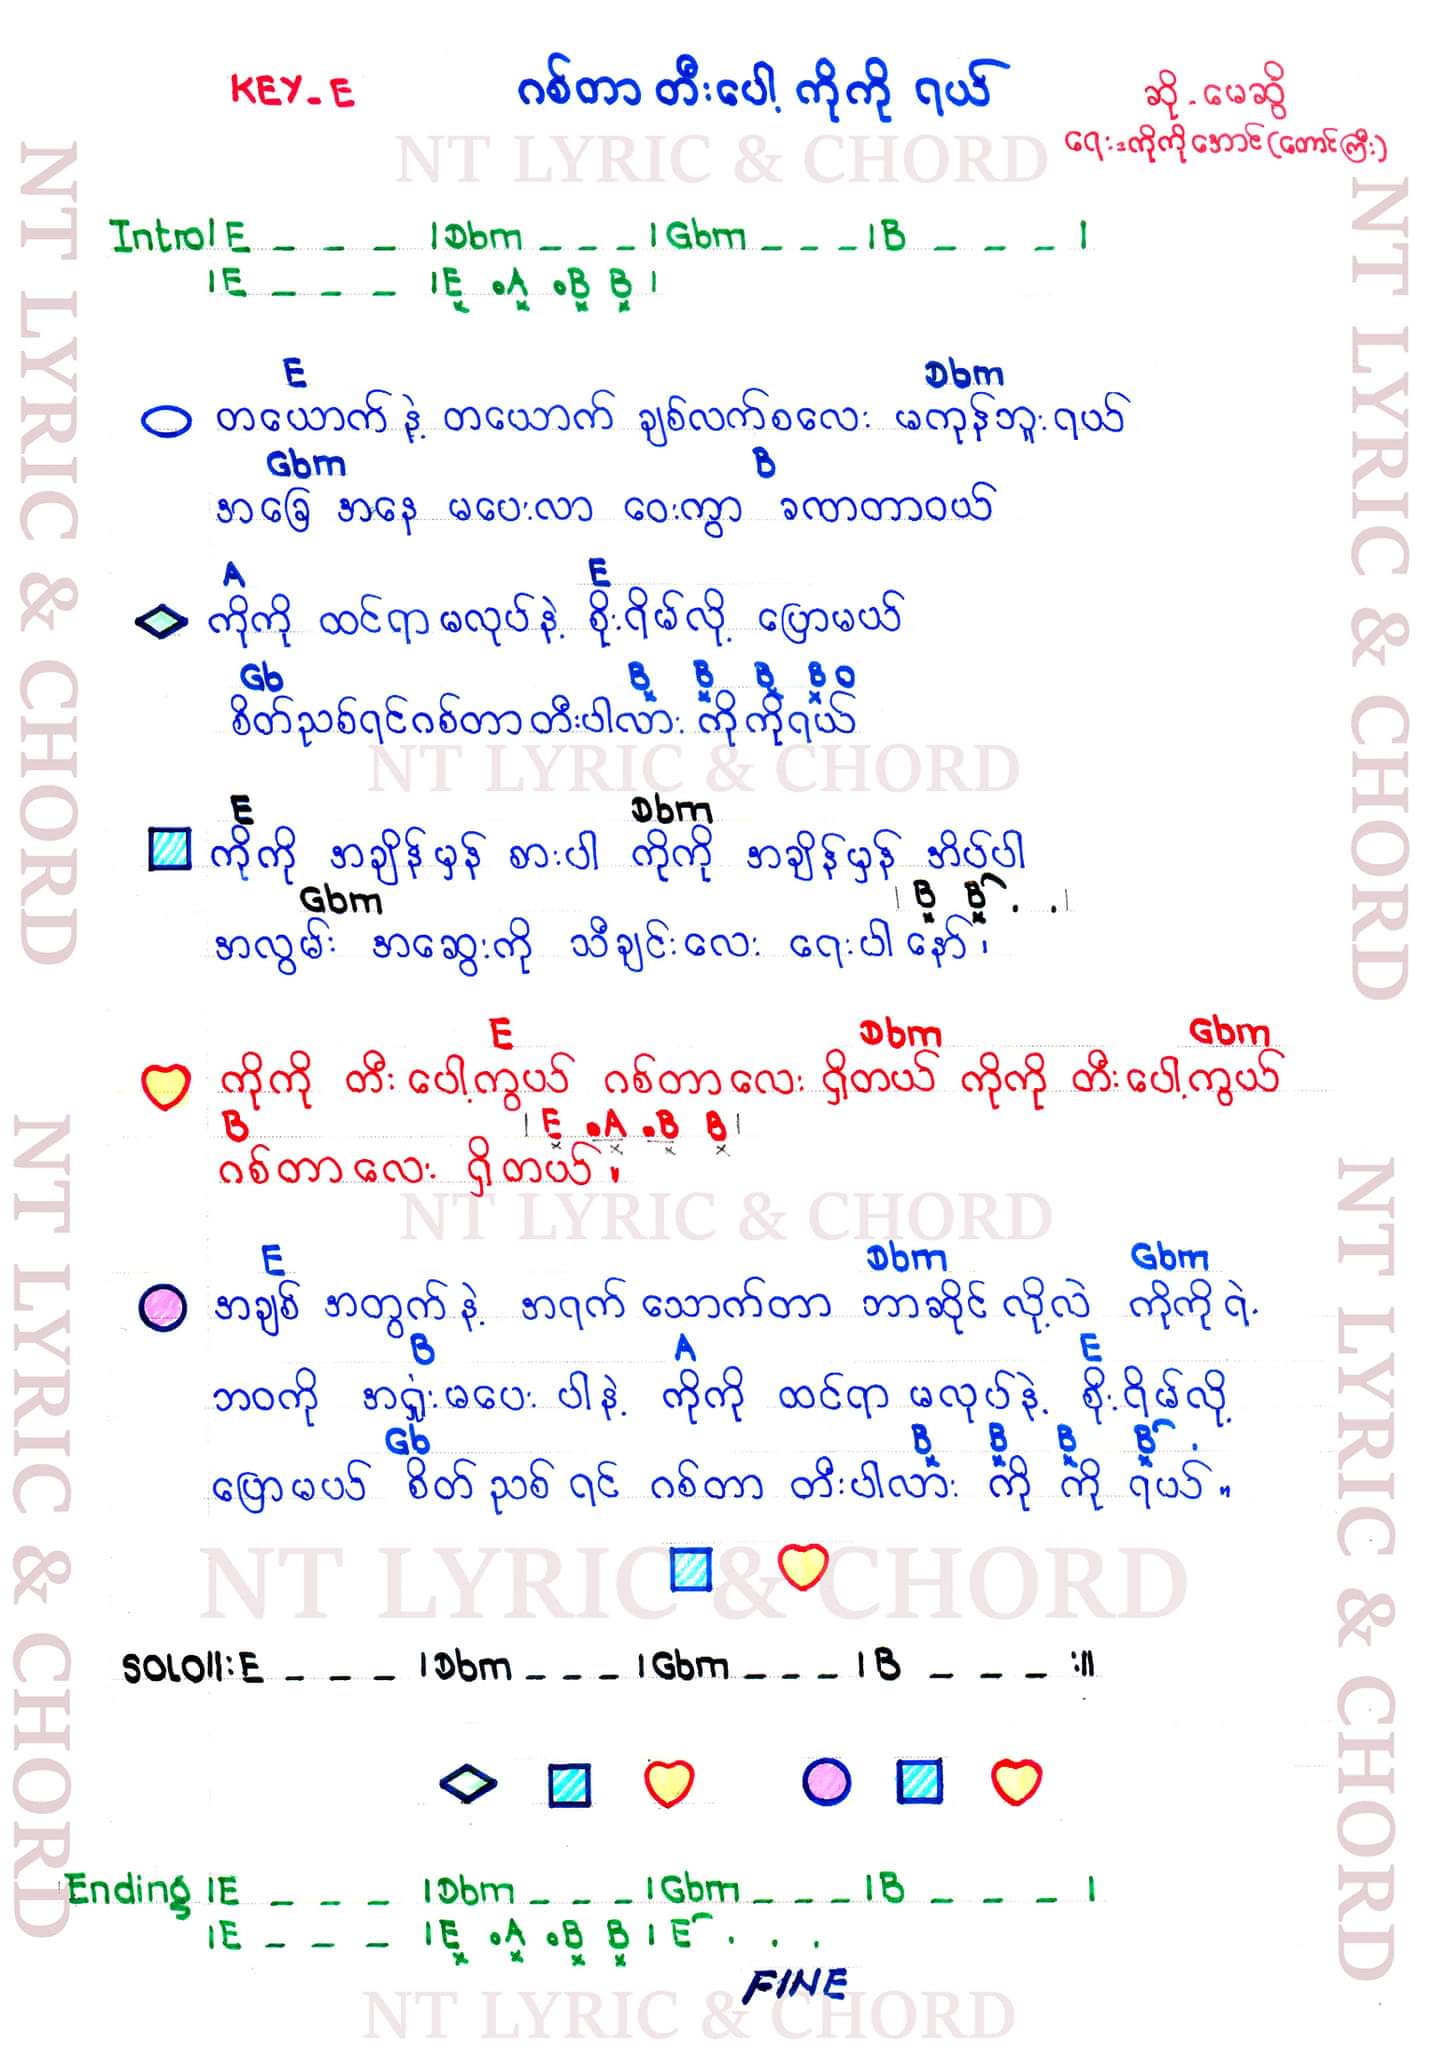 KEY-E ဂစ်တာ တီးပေါ့ ကိုကို ရယ် ဆို - မေဆွိ
ရေး = ကိုကိုအောင် (တောင်ကြီး)
NT LYRIC & CHORD
Intro|E _ _ _ |Dbm _ _ _ |Gbm _ _ _ |B _ _ _ |
|E _ _ _ |E •A •B B |
E Dbm
တယောက်နဲ့ တယောက် ချစ်လက်စလေး မကုန်ဘူးရယ်
Gbm B
အခြေ အနေ မပေးလာ ဝေးကွာ ခဏတာဝယ်
A E
ကိုကို ထင်ရာမလုပ်နဲ့ စိုးရိမ်လို့ ပြောမယ်
Gb B B B B O
စိတ်ညစ်ရင်ဂစ်တာတီးပါလား ကိုကိုရယ်
NT LYRIC & CHORD
E Dbm
ကိုကို အချိန်မှန် စားပါ ကိုကို အချိန်မှန် အိပ်ပါ
Gbm | B B . . |
အလွမ်း အဆွေးကို သီချင်းလေး ရေးပါနော်၊
E Dbm Gbm
ကိုကို တီးပေါ့ကွယ် ဂစ်တာလေး ရှိတယ် ကိုကို တီးပေါ့ကွယ်
B | E •A •B B |
ဂစ်တာလေး ရှိတယ်။
NT LYRIC & CHORD
E Dbm Gbm
အချစ် အတွက်နဲ့ အရက်သောက်တာ ဘာဆိုင်လို့လဲ ကိုကိုရဲ့
B A E
ဘဝကို အရှုံးမပေးပါနဲ့ ကိုကို ထင်ရာ မလုပ်နဲ့ စိုးရိမ်လို့
Gb B B B B .
ပြောမယ် စိတ်ညစ်ရင် ဂစ်တာ တီးပါလား ကို ကို ရယ်။
NT LYRIC & CHORD
SOLO||:E _ _ _ |Dbm _ _ _ |Gbm _ _ _ |B _ _ _ :||
Ending |E _ _ _ |Dbm _ _ _ |Gbm _ _ _ |B _ _ _ |
|E _ _ _ |E •A •B B | E . . .
FINE
NT LYRIC & CHORD
NT LYRIC & CHORD
NT LYRIC & CHORD
NT LYRIC & CHORD
NT LYRIC & CHORD